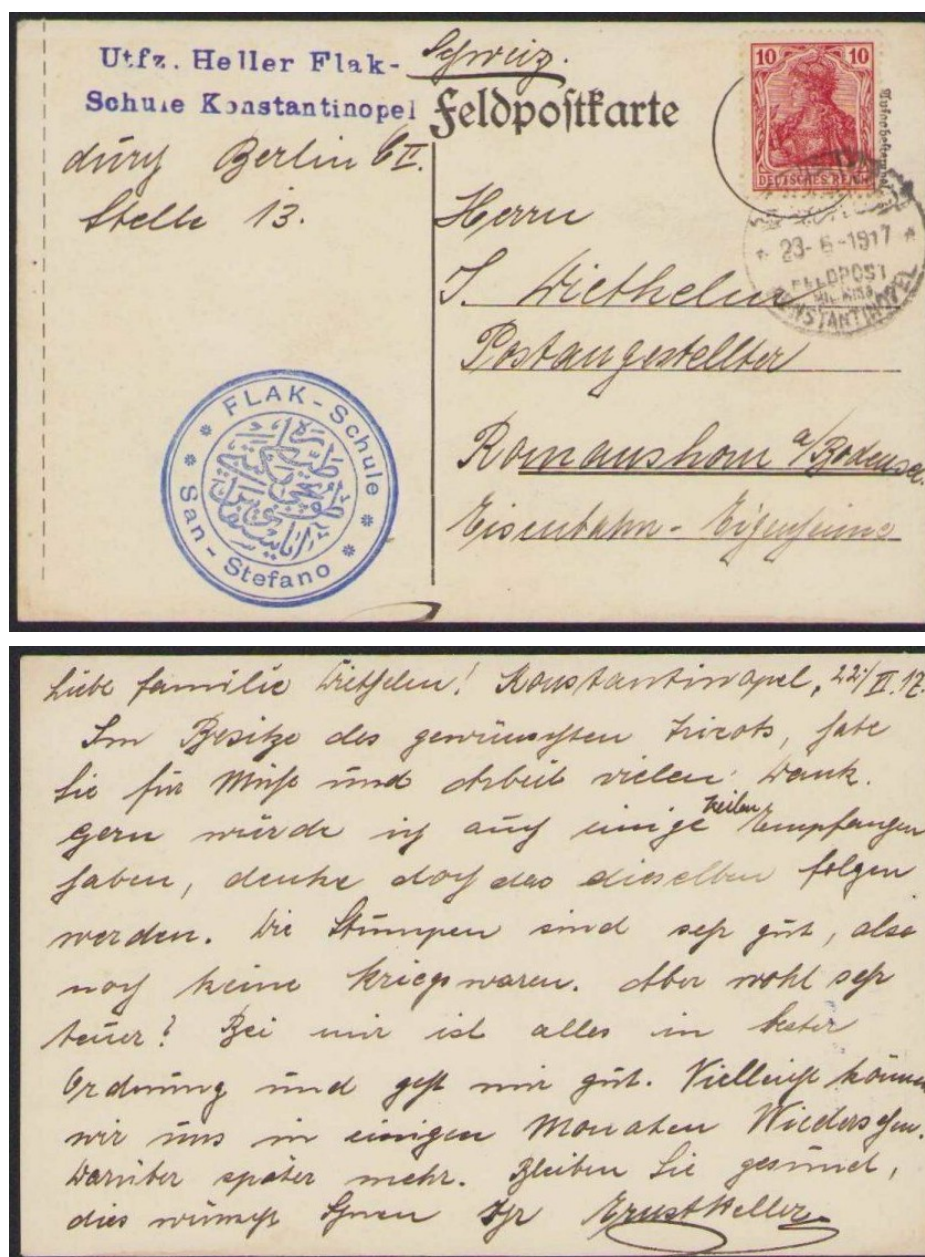 Utfz. Heller Flak-
Schule Konstantinopel
durch Berlin C II.
Stelle 13.
Schweiz.
Feldpostkarte
10 10
DEUTSCHES REICH
23-6-1917
FELDPOST
KONSTANTINOPEL
Herrn
J. Wiethelm
Postangestellter
Romanshorn a/Bodensee.
Eisenbahn-
FLAK-Schule
San-Stefano
Liebe Familie Wiethelm! Konstantinopel, 22/II.17.
Im Besitze des gewünschten Tricots, habe
Sie für Mühe und Arbeit vielen Dank.
Gern würde ich auch einige Zeilen Empfangen
haben, denke doch das dieselben folgen
werden. Die Stumpen sind sehr gut, also
noch keine Kriegswaren. Aber wohl sehr
teuer? Bei mir ist alles in bester
Ordnung und geht mir gut. Vielleicht können
wir uns in einigen Monaten Wiedersehen.
Darüber später mehr. Bleiben Sie gesund,
dies wünscht Ihnen Ihr Ernst Heller